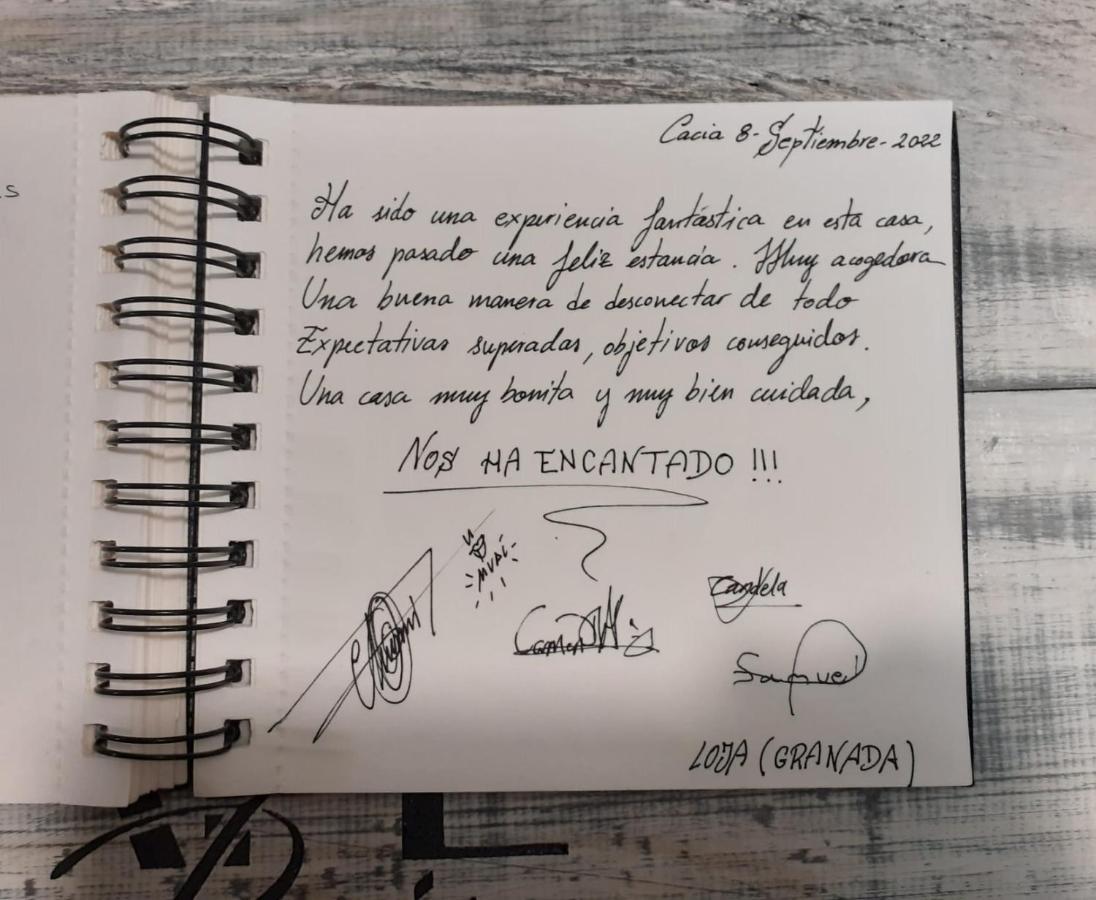 Cacia 8-Septiembre-2022
Ha sido una experiencia fantástica en esta casa,
hemos pasado una feliz estancia. Muy acogedora
Una buena manera de desconectar de todo
Expectativas superadas, objetivos conseguidos.
Una casa muy bonita y muy bien cuidada,
NOS HA ENCANTADO !!!
Candela
Samuel
LOJA (GRANADA)